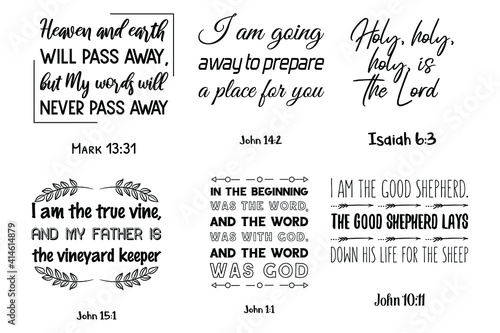 Heaven and earth
WILL PASS AWAY,
but My words will
NEVER PASS AWAY
Mark 13:31
I am going
away to prepare
a place for you
John 14:2
Holy, holy,
holy, is
the Lord
Isaiah 6:3
I am the true vine,
AND MY FATHER IS
the vineyard keeper
John 15:1
IN THE BEGINNING
WAS THE WORD,
AND THE WORD
WAS WITH GOD,
AND THE WORD
WAS GOD
John 1:1
I AM THE GOOD SHEPHERD.
THE GOOD SHEPHERD LAYS
DOWN HIS LIFE FOR THE SHEEP
John 10:11
Adobe Stock | #414614879